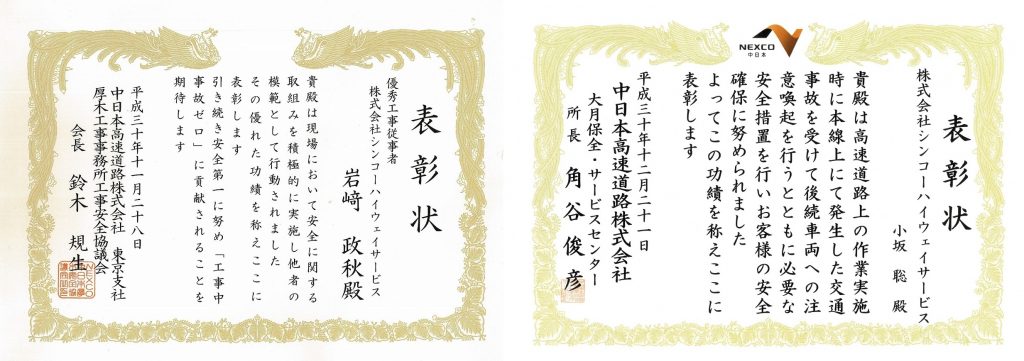 表彰状
優秀工事従事者
株式会社シンコーハイウェイサービス
岩﨑 政秋殿
貴殿は現場において安全に関する
取組みを積極的に実施し他者の
模範として行動されました
その優れた功績を称えここに
表彰します
引き続き安全第一に努め「工事中
事故ゼロ」に貢献されることを
期待します
平成三十年十一月二十八日
中日本高速道路株式会社 東京支社
厚木工事事務所工事安全協議会
会長 鈴木 規生
NEXCO
中日本
表彰状
株式会社シンコーハイウェイサービス
小坂 聡 殿
貴殿は高速道路上の作業実施
時に本線上にて発生した交通
事故を受けて後続車両への注
意喚起を行うとともに必要な
安全措置を行いお客様の安全
確保に努められました
よってこの功績を称えここに
表彰します
平成三十年十二月二十一日
中日本高速道路株式会社
大月保全・サービスセンター
所長 角谷俊彦